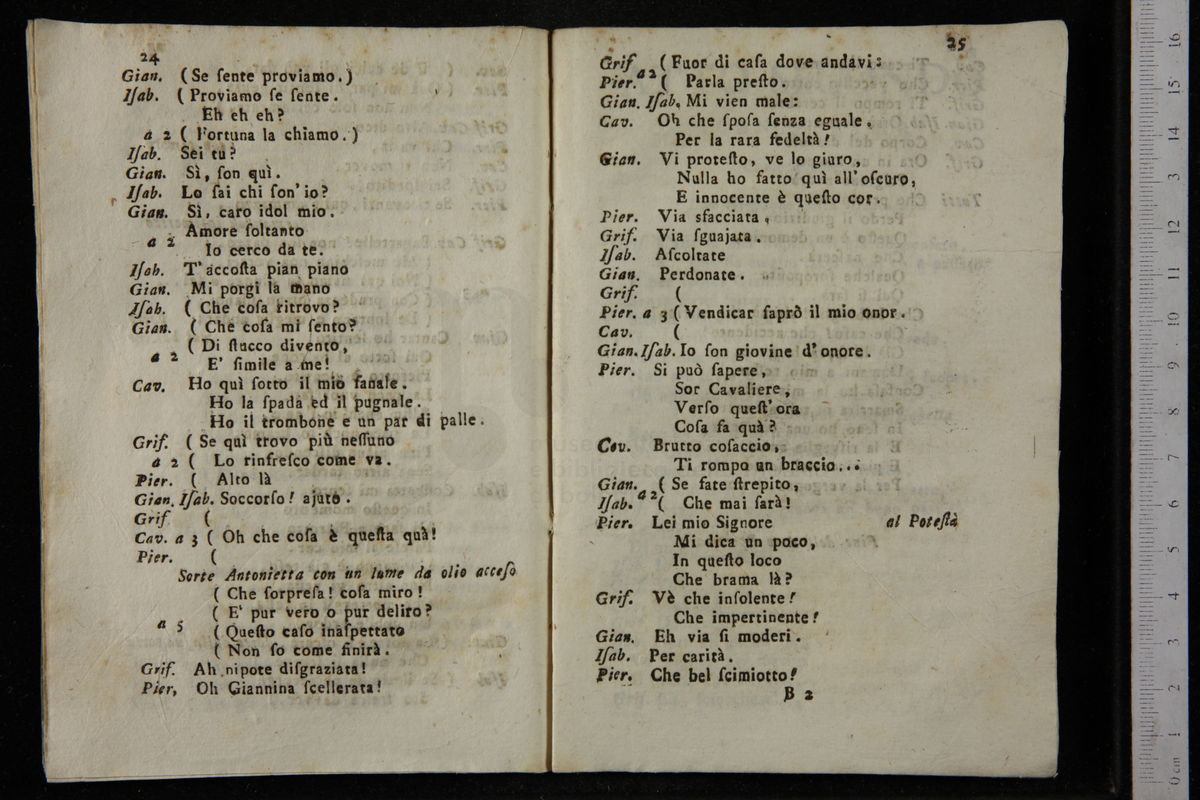 24
Gian. (Se ſente proviamo.)
Iſab. (Proviamo ſe ſente.
Eh eh eh?
a 2 (Fortuna la chiamo.)
Iſab. Sei tu?
Gian. Sì, ſon quì.
Iſab. Lo ſai chi ſon' io?
Gian. Sì, caro idol mio.
Amore ſoltanto
a 2
Io cerco da te.
Iſab. T' accoſta pian piano
Gian. Mi porgi la mano
Iſab. ( Che coſa ritrovo?
Gian. ( Che coſa mi ſento?
( Di ſtucco divento,
a 2
E' ſimile a me!
Cav. Ho quì ſotto il mio fanale.
Ho la ſpada ed il pugnale.
Ho il trombone e un par di palle.
Grif. ( Se quì trovo più neſſuno
a 2 ( Lo rinfreſco come va.
Pier. ( Alto là
Gian. Iſab. Soccorſo! ajuto.
Grif (
Cav. a 3 ( Oh che coſa è queſta quà!
Pier. (
Sorte Antonietta con un lume da olio acceſo
( Che ſorpreſa! coſa miro!
( E' pur vero o pur deliro?
a 5
( Queſto caſo inaſpettato
( Non ſo come finirà.
Grif. Ah nipote diſgraziata!
Pier, Oh Giannina ſcellerata!
25
Grif (Fuor di caſa dove andavi:
a 2
Pier. ( Parla preſto.
Gian. Iſab. Mi vien male:
Cav. Oh che ſpoſa ſenza eguale,
Per la rara fedeltà!
Gian. Vi proteſto, ve lo giuro,
Nulla ho fatto quì all' oſcuro,
E innocente è queſto cor.
Pier. Via sfacciata,
Grif. Via ſguajata.
Iſab. Aſcoltate
Gian. Perdonate.
Grif. (
Pier. a 3 (Vendicar ſaprò il mio onor.
Cav. (
Gian. Iſab. Io ſon giovine d' onore.
Pier. Si può ſapere,
Sor Cavaliere,
Verſo queſt' ora
Coſa fa quà?
Cav. Brutto coſaccio,
Ti rompo un braccio...
Gian. ( Se fate ſtrepito,
a 2
Iſab. ( Che mai ſarà!
Pier. Lei mio Signore al Poteſtà
Mi dica un poco,
In queſto loco
Che brama là?
Grif. Vè che inſolente!
Che impertinente!
Gian. Eh via ſi moderi.
Iſab. Per carità.
Pier. Che bel ſcimiotto!
B 2
0 cm 1 2 3 4 5 6 7 8 9 10 11 12 13 14 15 16